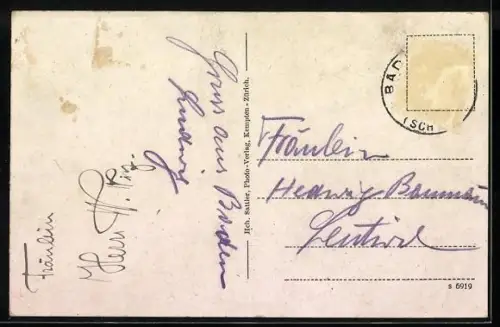 Gruss aus Baden
Ludwig
Fräulein
Herr
Hch. Sattler, Photo-Verlag, Kempten - Zürich.
BAD
(SCH
Fräulein
Hedwig Baumann
s 6919